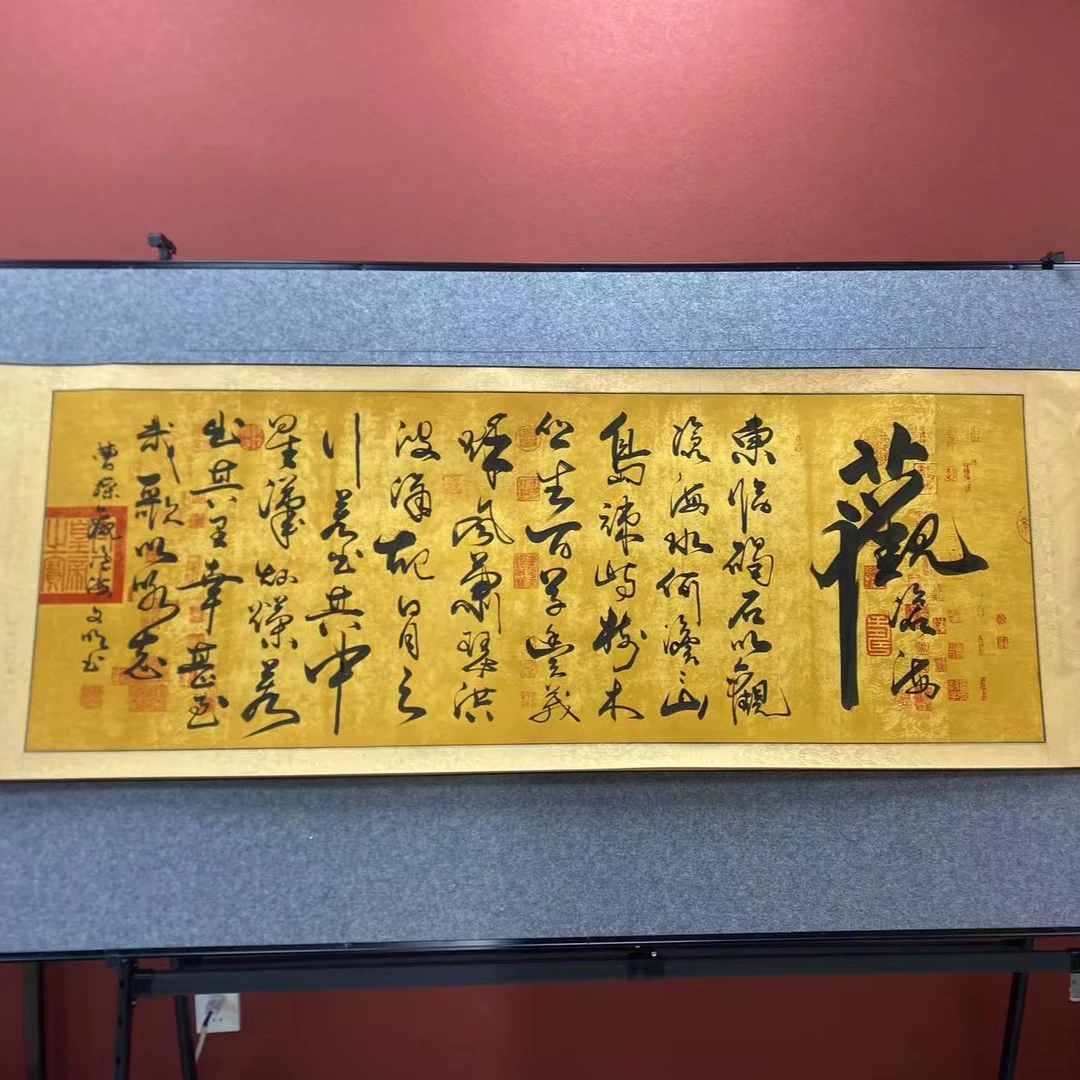 觀滄海
東临碣石以觀
滄海水何澹山
島竦峙樹木
丛生百草豐茂
秋風蕭瑟洪
波涌起日月之
行若出其中
星漢燦爛若
出其里幸甚至
哉歌以咏志
曹操觀滄海文明书